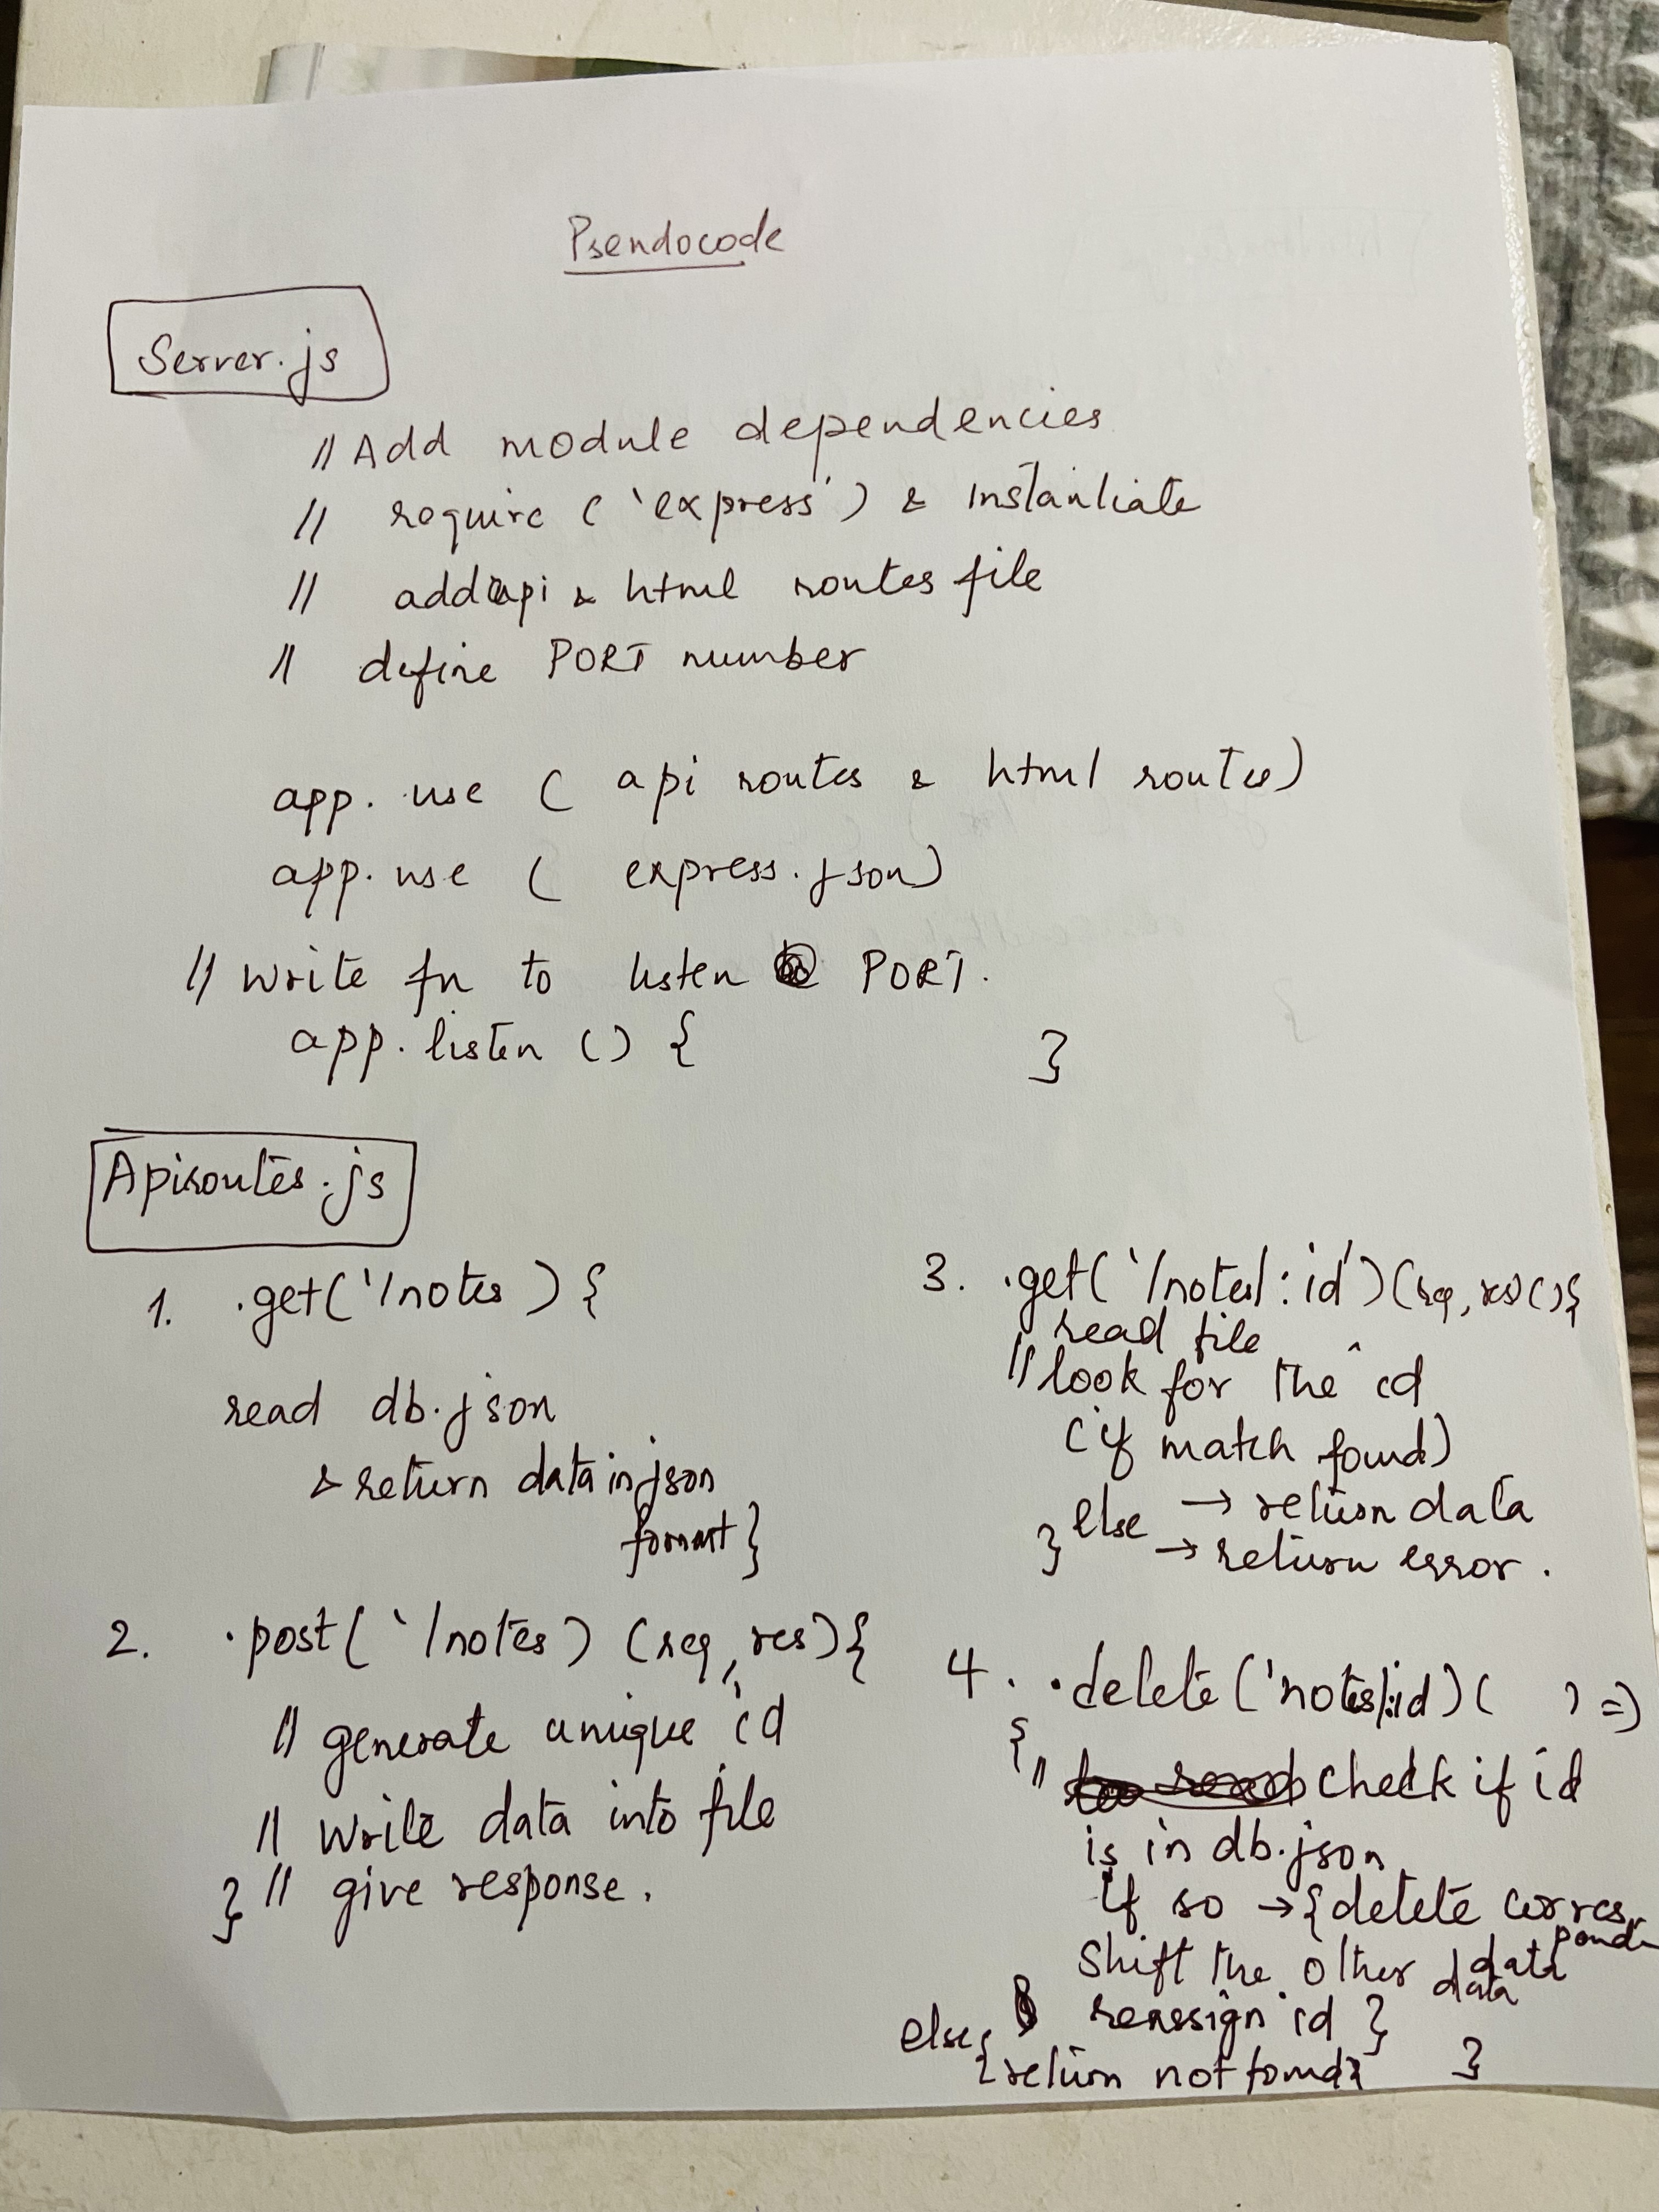 Pseudocode
Server.js
// Add module dependencies
// require ('express') & Instantiate
// add api & html routes file
// define PORT number
app. use ( api routes & html routes)
app. use ( express.json)
// Write fn to listen @ PORT.
app. listen () { }
Apiroutes.js
1. .get('/notes ) {
read db.json
& return data in json
format }
2. .post( '/notes) (req, res) {
// generate unique id
// write data into file
} // give response.
3. .get( '/notes/:id') (req, res) () {
read file
// look for the id
(if match found)
→ return data
} else → return error .
4. .delete ('notes/:id) ( ) =>
{ // check if id
is in db.json
If so → { delete correspondi
data
Shift the other data
reassign id }
else {return not found} }